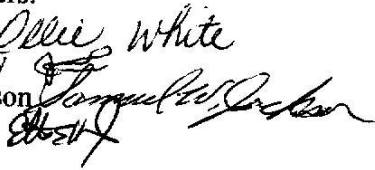 ers.
Ollie White
son Samuel W. Jackson